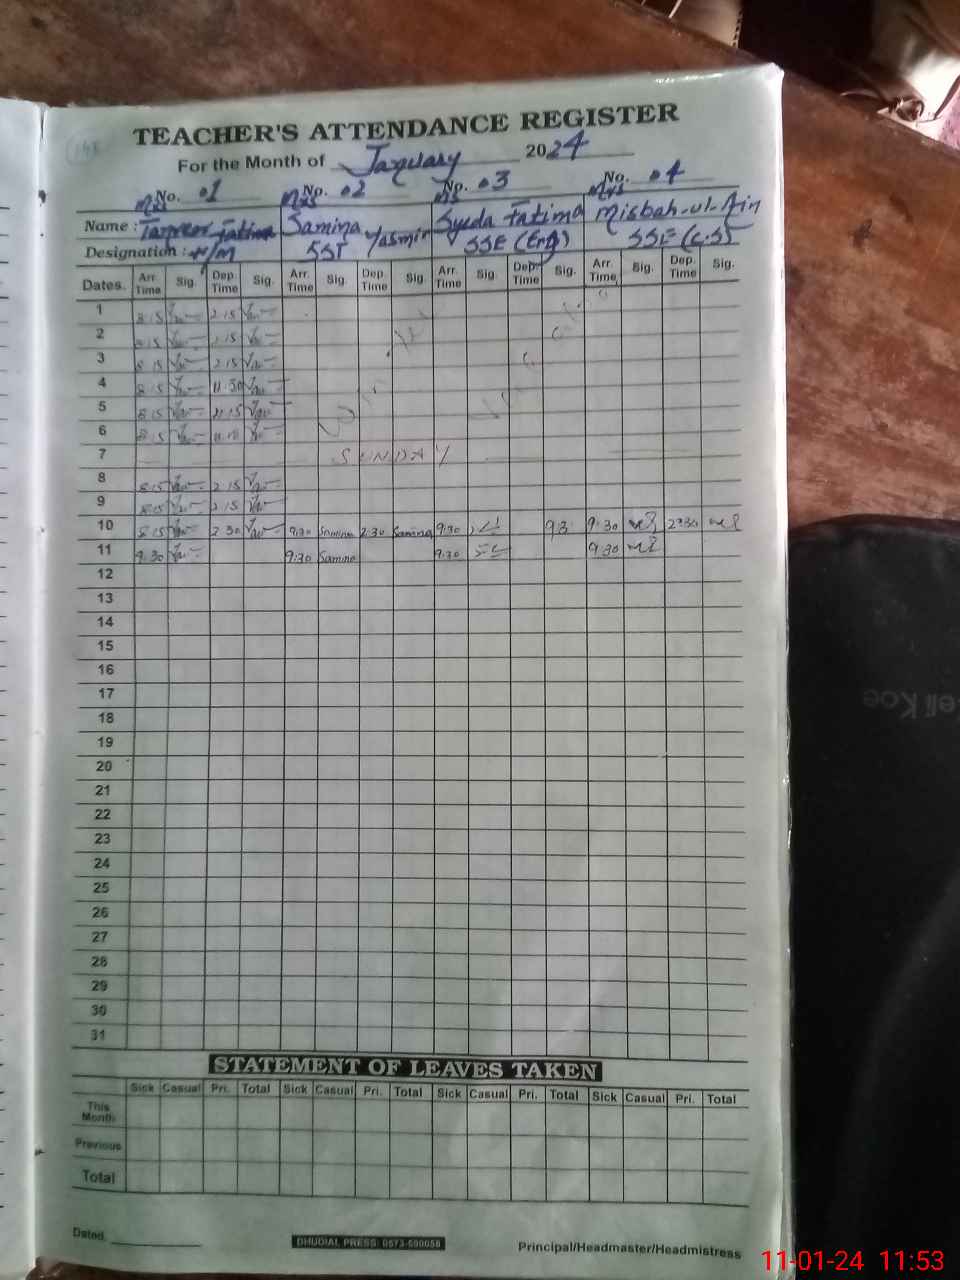 TEACHER'S ATTENDANCE REGISTER
For the Month of January 2024
No. 01 No. 02 No. 03 No. 04
Mrs Mrs Ms Mrs
Name : Fatima Samina Yasmin Syeda Fatima Misbah-ul-Ain
Designation : H/M SST SSE (Eng) SSE (C.S)
Dates. Arr. Time Sig. Dep. Time Sig. Arr. Time Sig. Dep. Time Sig. Arr. Time Sig. Dep. Time Sig. Arr. Time Sig. Dep. Time Sig.
1 8:15 2:15
2 8:15 2:15
3 8:15 2:15
4 8:15 11:30
5 8:15 11:15
6 8:15
7 SUNDAY
8 8:15 2:15
9 8:15 2:15
10 8:15 2:30 9:30 Samina 2:30 Samina 9:30 9:30 2:30
11 9:30 9:30 Samina 9:30 9:30
12
13
14
15
16
17
18
19
20
21
22
23
24
25
26
27
28
29
30
31
STATEMENT OF LEAVES TAKEN
Sick Casual Pri. Total Sick Casual Pri. Total Sick Casual Pri. Total Sick Casual Pri. Total
This Month
Previous
Total
Dated.
DHUDIAL PRESS: 0573-590058
Principal/Headmaster/Headmistress
11-01-24 11:53